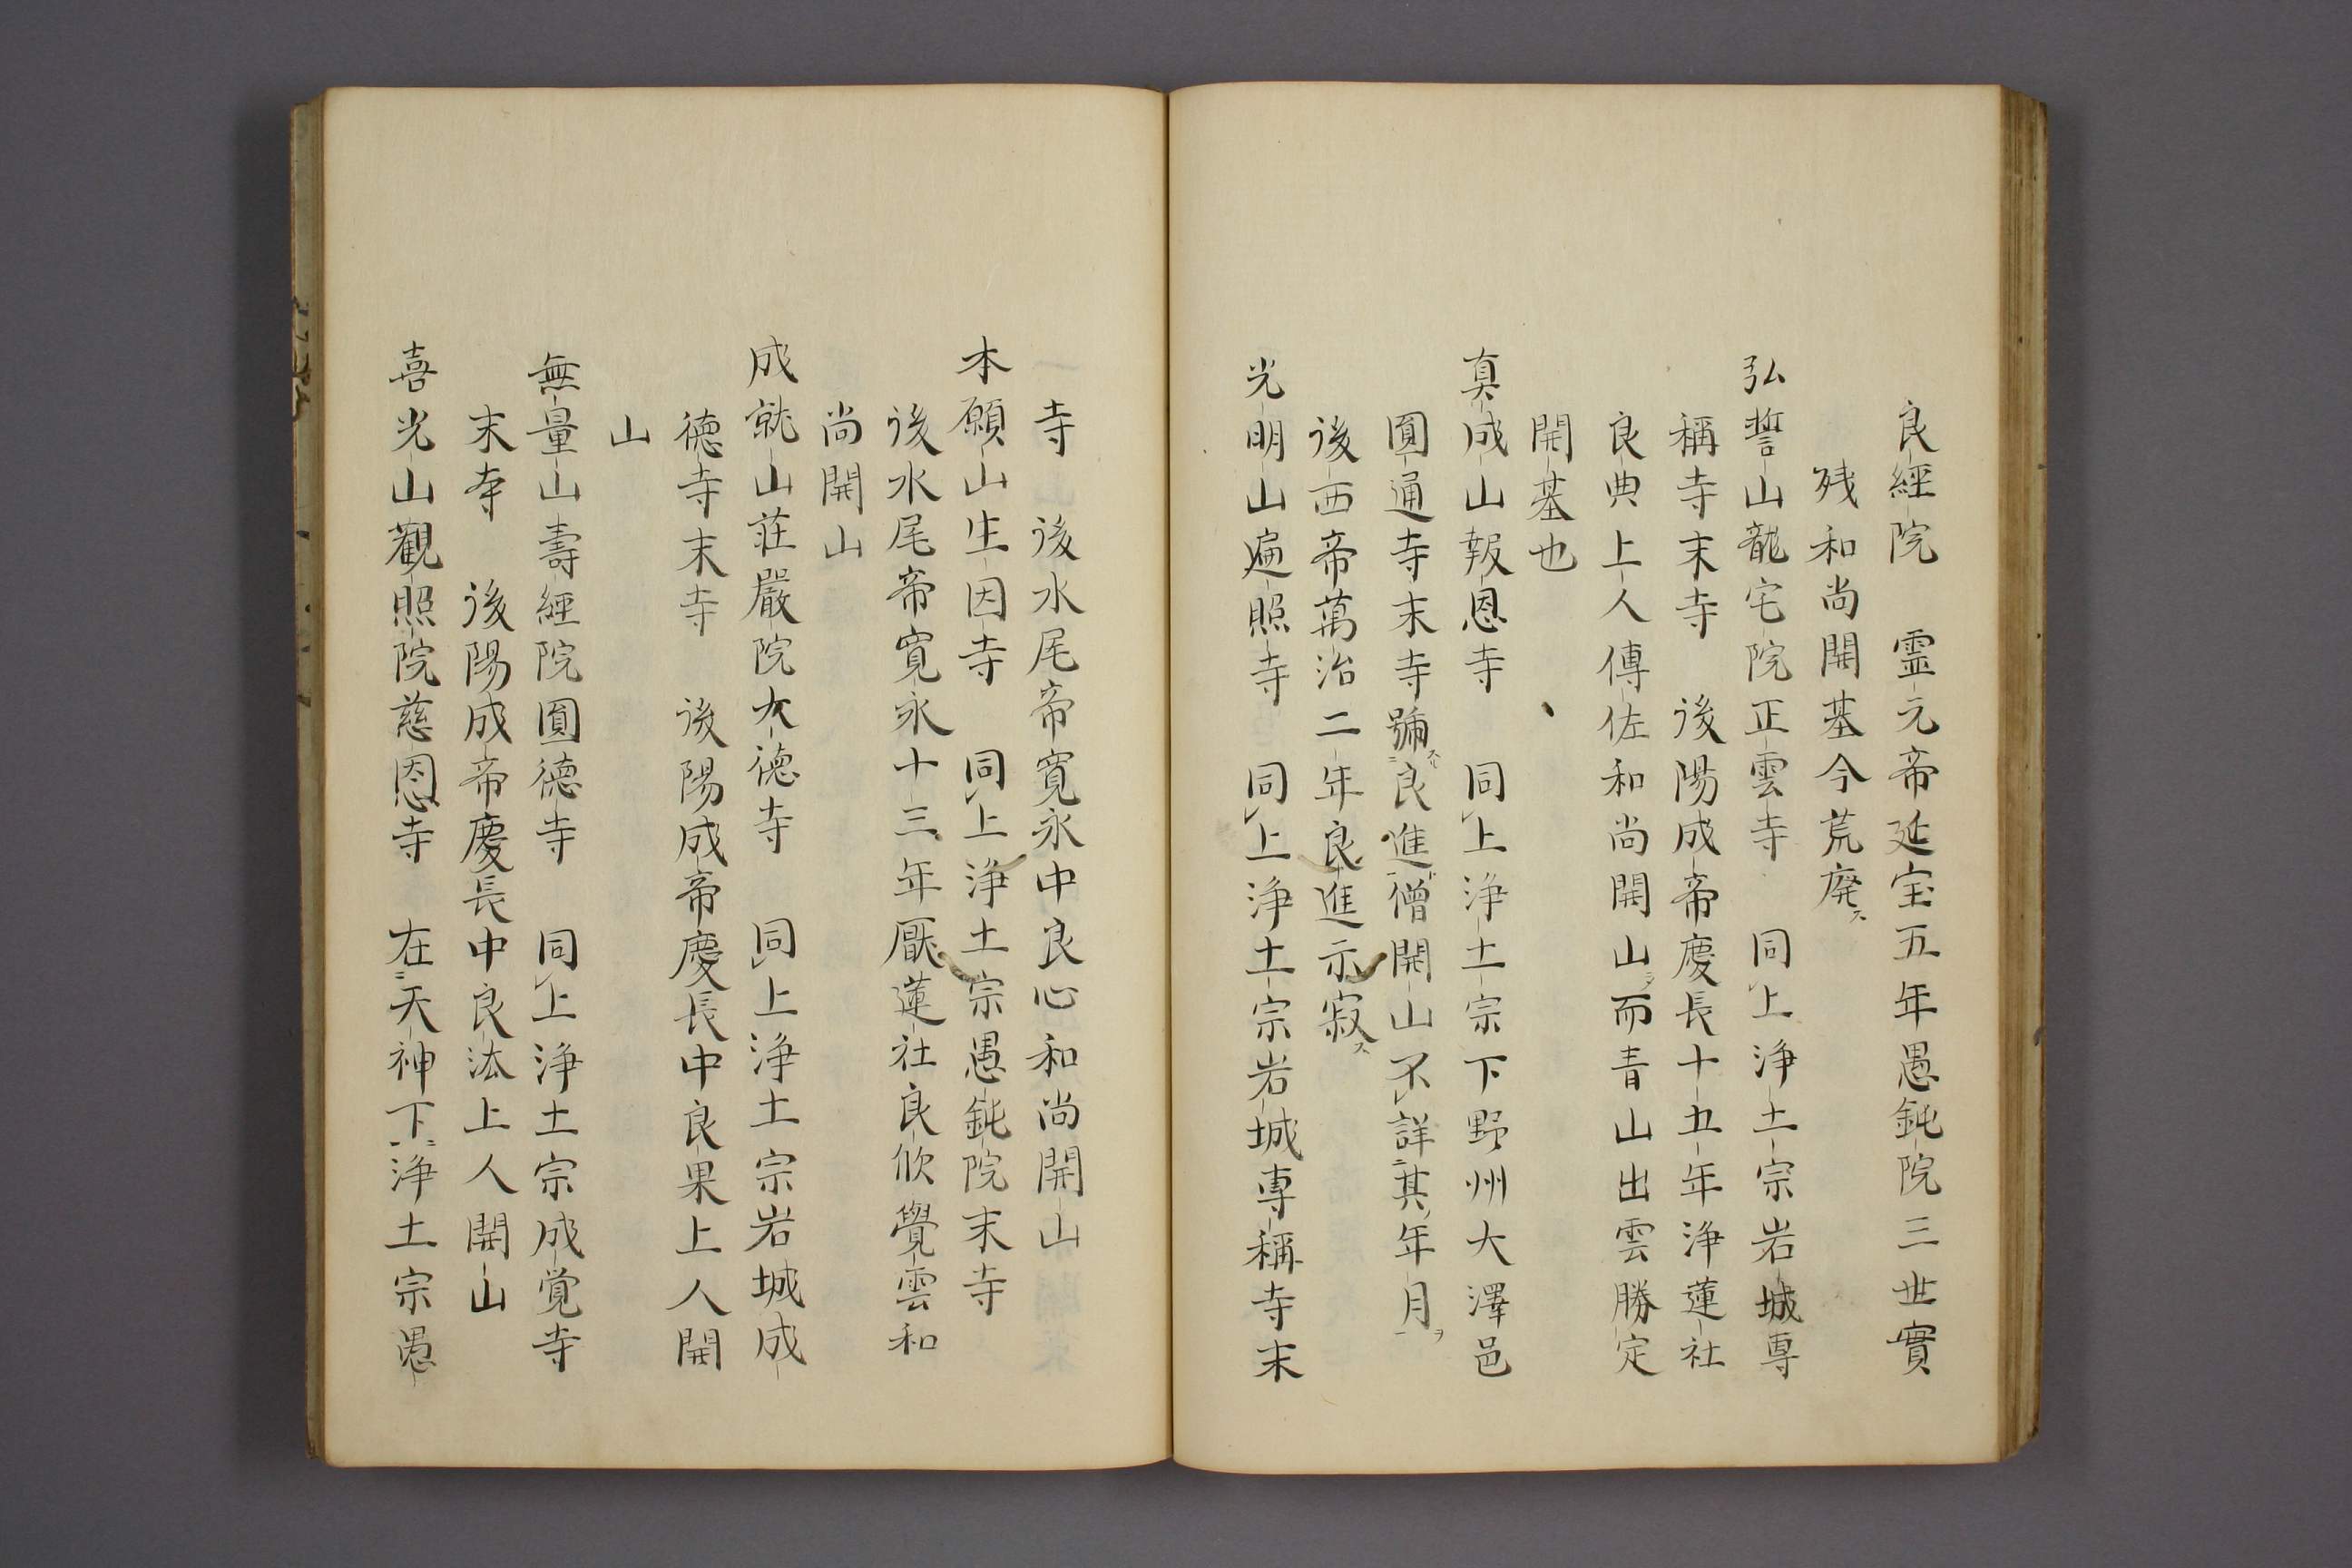 良經院　霊元帝延宝五年愚鈍院三世實
残和尚開基今荒廃ス
弘誓山龍宅院正雲寺　同上浄土宗岩城専
稱寺末寺　後陽成帝慶長十五年浄蓮社
良典上人傳佐和尚開山而青山出雲勝定
開基也
真成山報恩寺　同上浄土宗下野州大澤邑
圓通寺末寺號良進僧開山不詳其年月ヲ
後西帝萬治二年良進示寂ス
光明山遍照寺　同上浄土宗岩城専稱寺末
寺　後水尾帝寛永中良心和尚開山
本願山生因寺　同上浄土宗愚鈍院末寺
後水尾帝寛永十三年厭蓮社良欣覺雲和
尚開山
成就山荘嚴院大徳寺　同上浄土宗岩城成
徳寺末寺　後陽成帝慶長中良果上人開
山
無量山壽經院圓徳寺　同上浄土宗成覚寺
末寺　後陽成帝慶長中良汯上人開山
喜光山觀照院慈恩寺　在天神下浄土宗愚